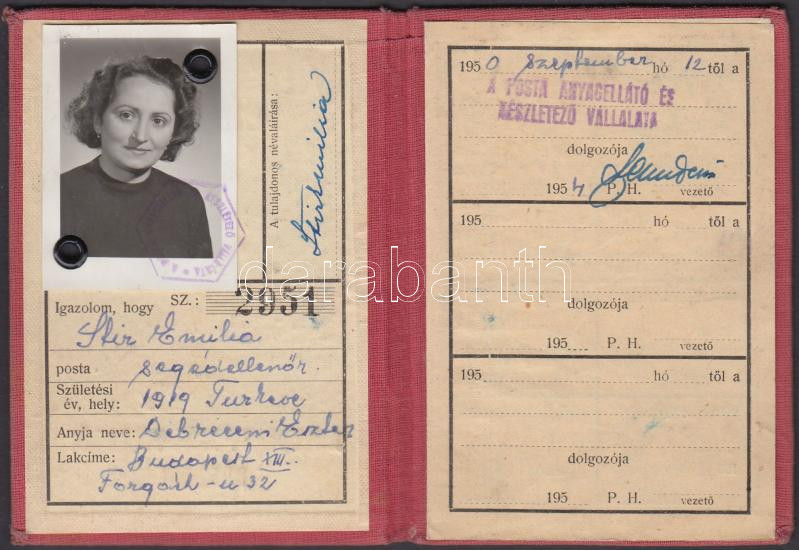 A tulajdonos névaláírása:
Stir Emilia
Igazolom, hogy SZ.: 2951
Stir Emilia
posta segédellenőr.
Születési
év, hely: 1919 Turkeve
Anyja neve: Debreceni Eszter
Lakcíme: Budapest XIII.
Forgách-u 32
1950 szeptember hó 12 től a
A POSTA ANYAGELLÁTÓ ÉS
RÉSZLETEZŐ VÁLLALATA
dolgozója
1954 P. H. vezető
195 hó től a
dolgozója
195 P. H. vezető
195 hó től a
dolgozója
195 P. H. vezető
darabanth